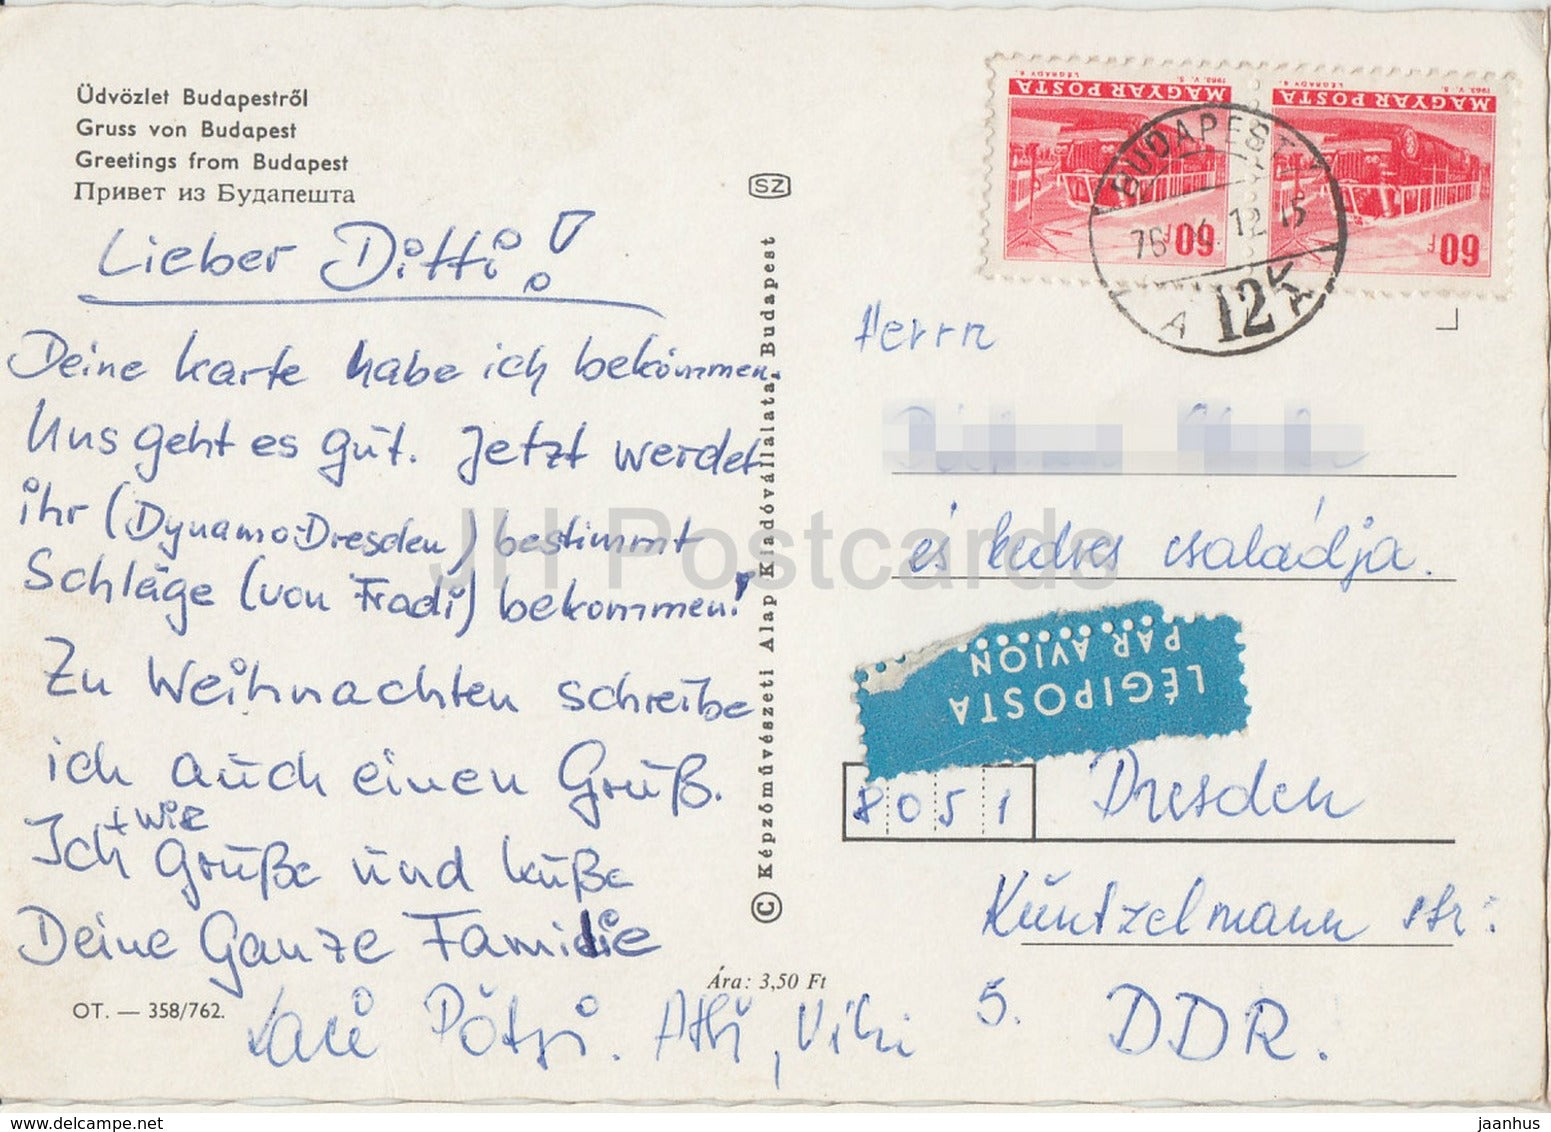 Üdvözlet Budapestről
Gruss von Budapest
Greetings from Budapest
Привет из Будапешта
Lieber Ditti!
Deine Karte habe ich bekommen.
Uns geht es gut. Jetzt werdet
ihr (Dynamo-Dresden) bestimmt
Schläge (von Fradi) bekommen!
Zu Weihnachten schreibe
ich auch einen Gruß.
+ wie
Ich Grüße und küße
Deine Ganze Familie
Pötyi. Atti, Viki
OT. — 358/762.
Ára: 3,50 Ft
SZ
© Képzőművészeti Alap Kiadóvállalata, Budapest
MAGYAR POSTA
1963. V. S. LÉGRÁDY S.
60 F
MAGYAR POSTA
1963. V. S. LÉGRÁDY S.
60 F
BUDAPEST
76 12 15
12
Herrn
és kedves családja.
LÉGIPOSTA
PAR AVION
8051 Dresden
Küntzelmann str:
5. DDR.
JH Postcards
www.delcampe.net
jaanhus